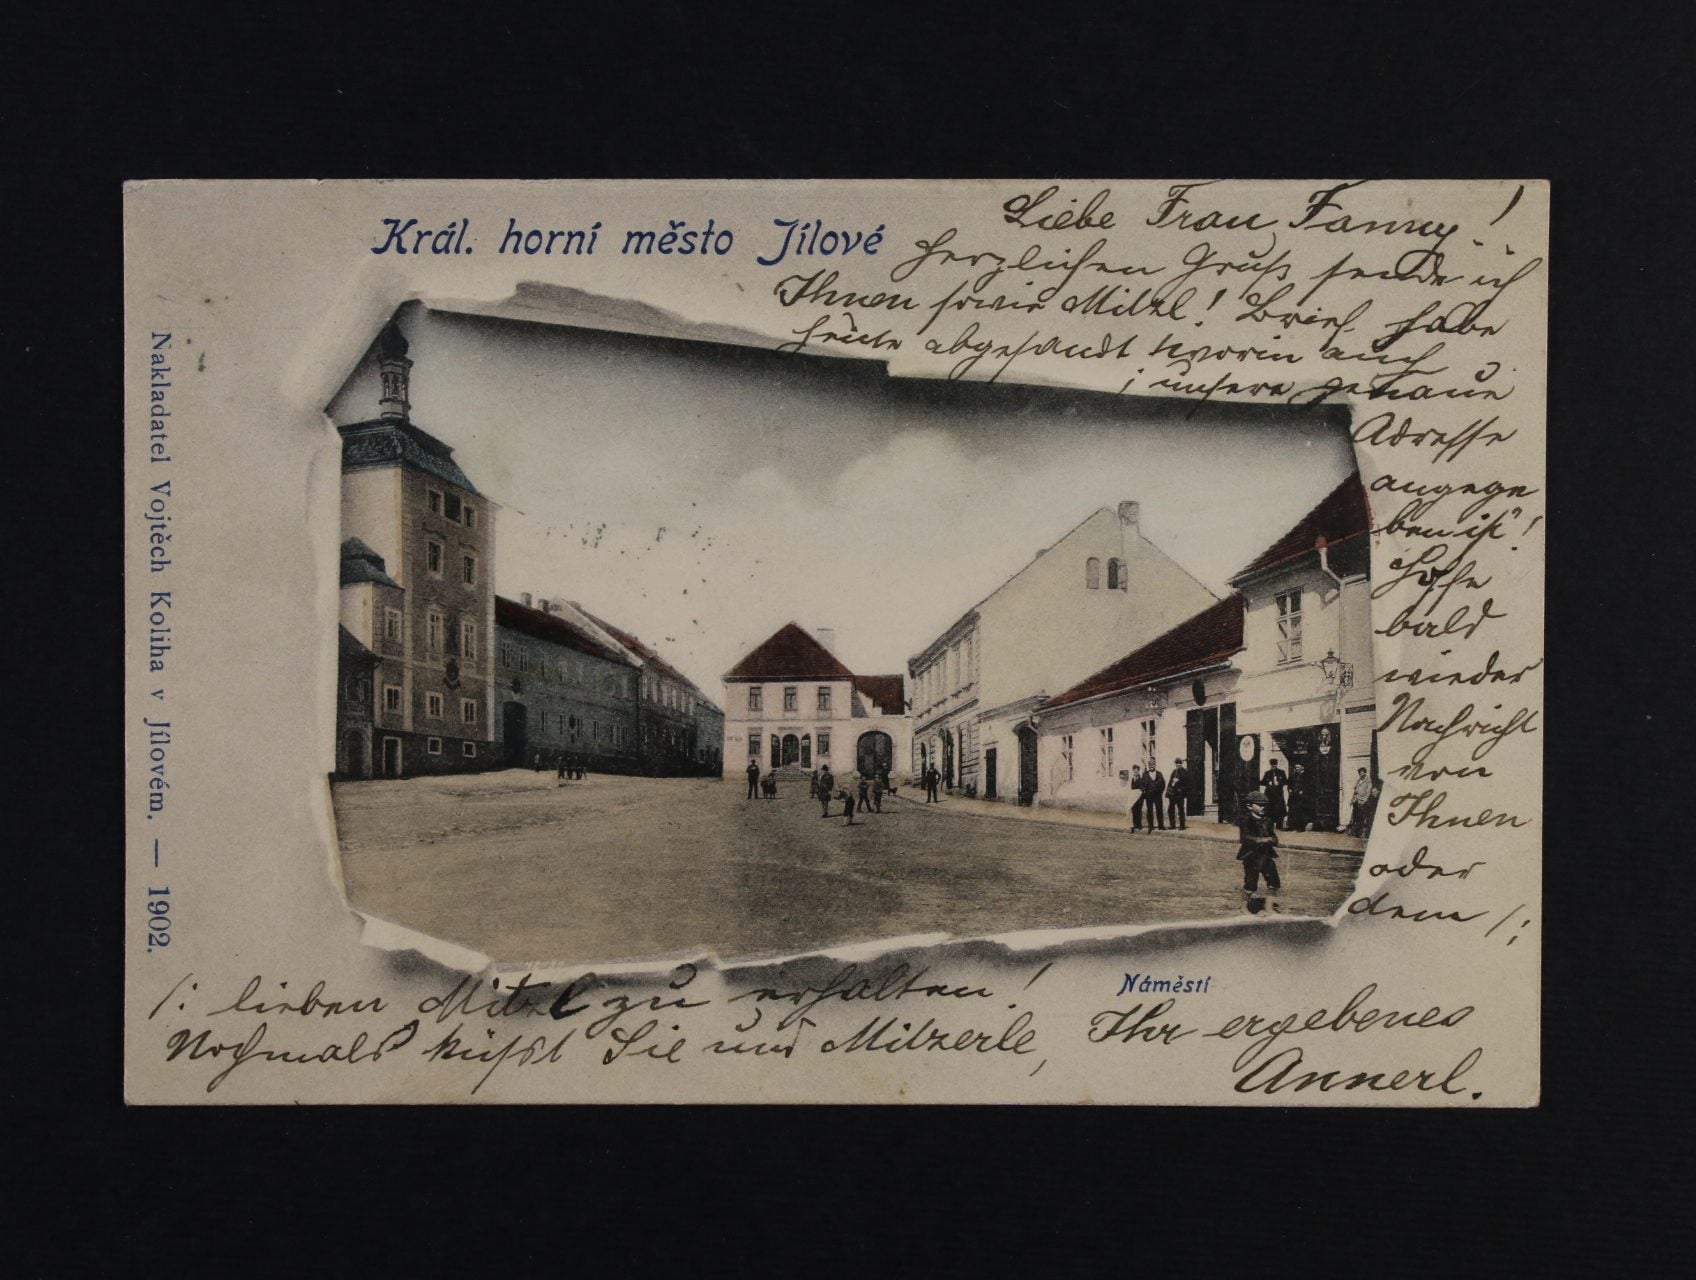 Král. horní město Jílové
Liebe Frau Fanny!
Herzlichen Gruß sende ich
Ihnen sowie Mitzl! Brief habe
heute abgesandt worin auch
unsere genaue
Adresse
angege
ben ist"!
Hoffe
bald
wieder
Nachricht
von
Ihnen
oder
dem /:
/: lieben Mitzl zu erhalten!
Nochmals küßt Sie und Mitzerle,
Náměstí
Ihr ergebenes
Annerl.
Nakladatel Vojtěch Koliha v Jílovém. — 1902.